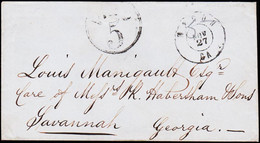 5
27
GA
Louis Manigault Esqr.
Care of Messrs R. Habersham & Sons
Savannah
Georgia.